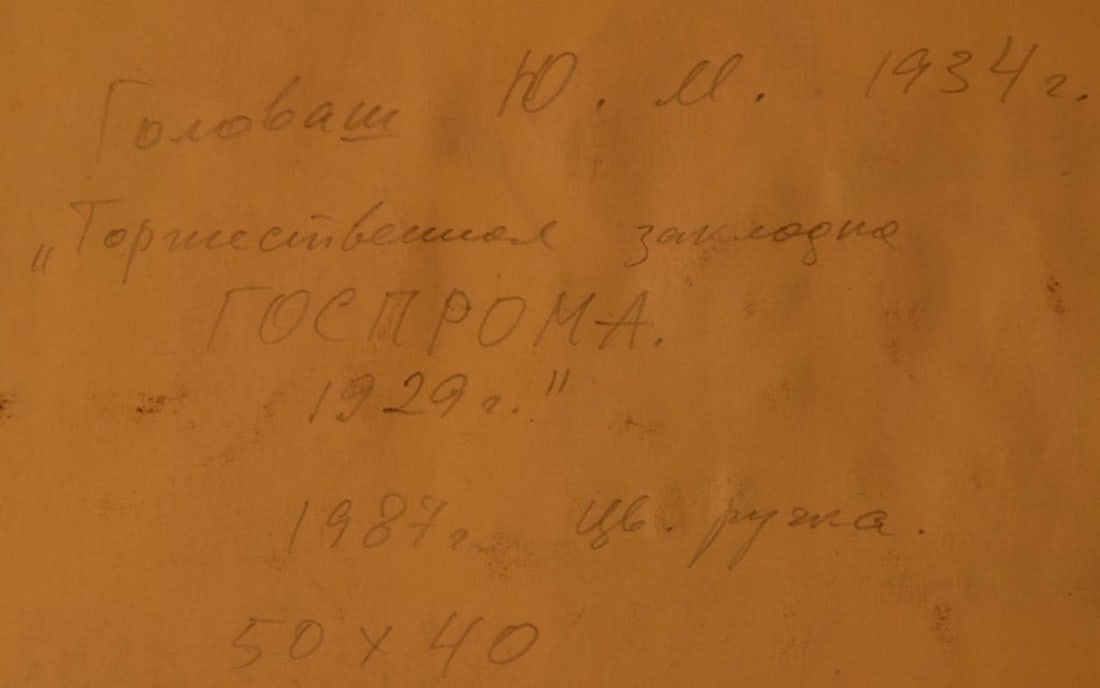 Головаш Ю. М. 1934 г.
„Торжественная закладка
ГОСПРОМА.
1929 г."
1987 г. Цв. ручка.
50 х 40